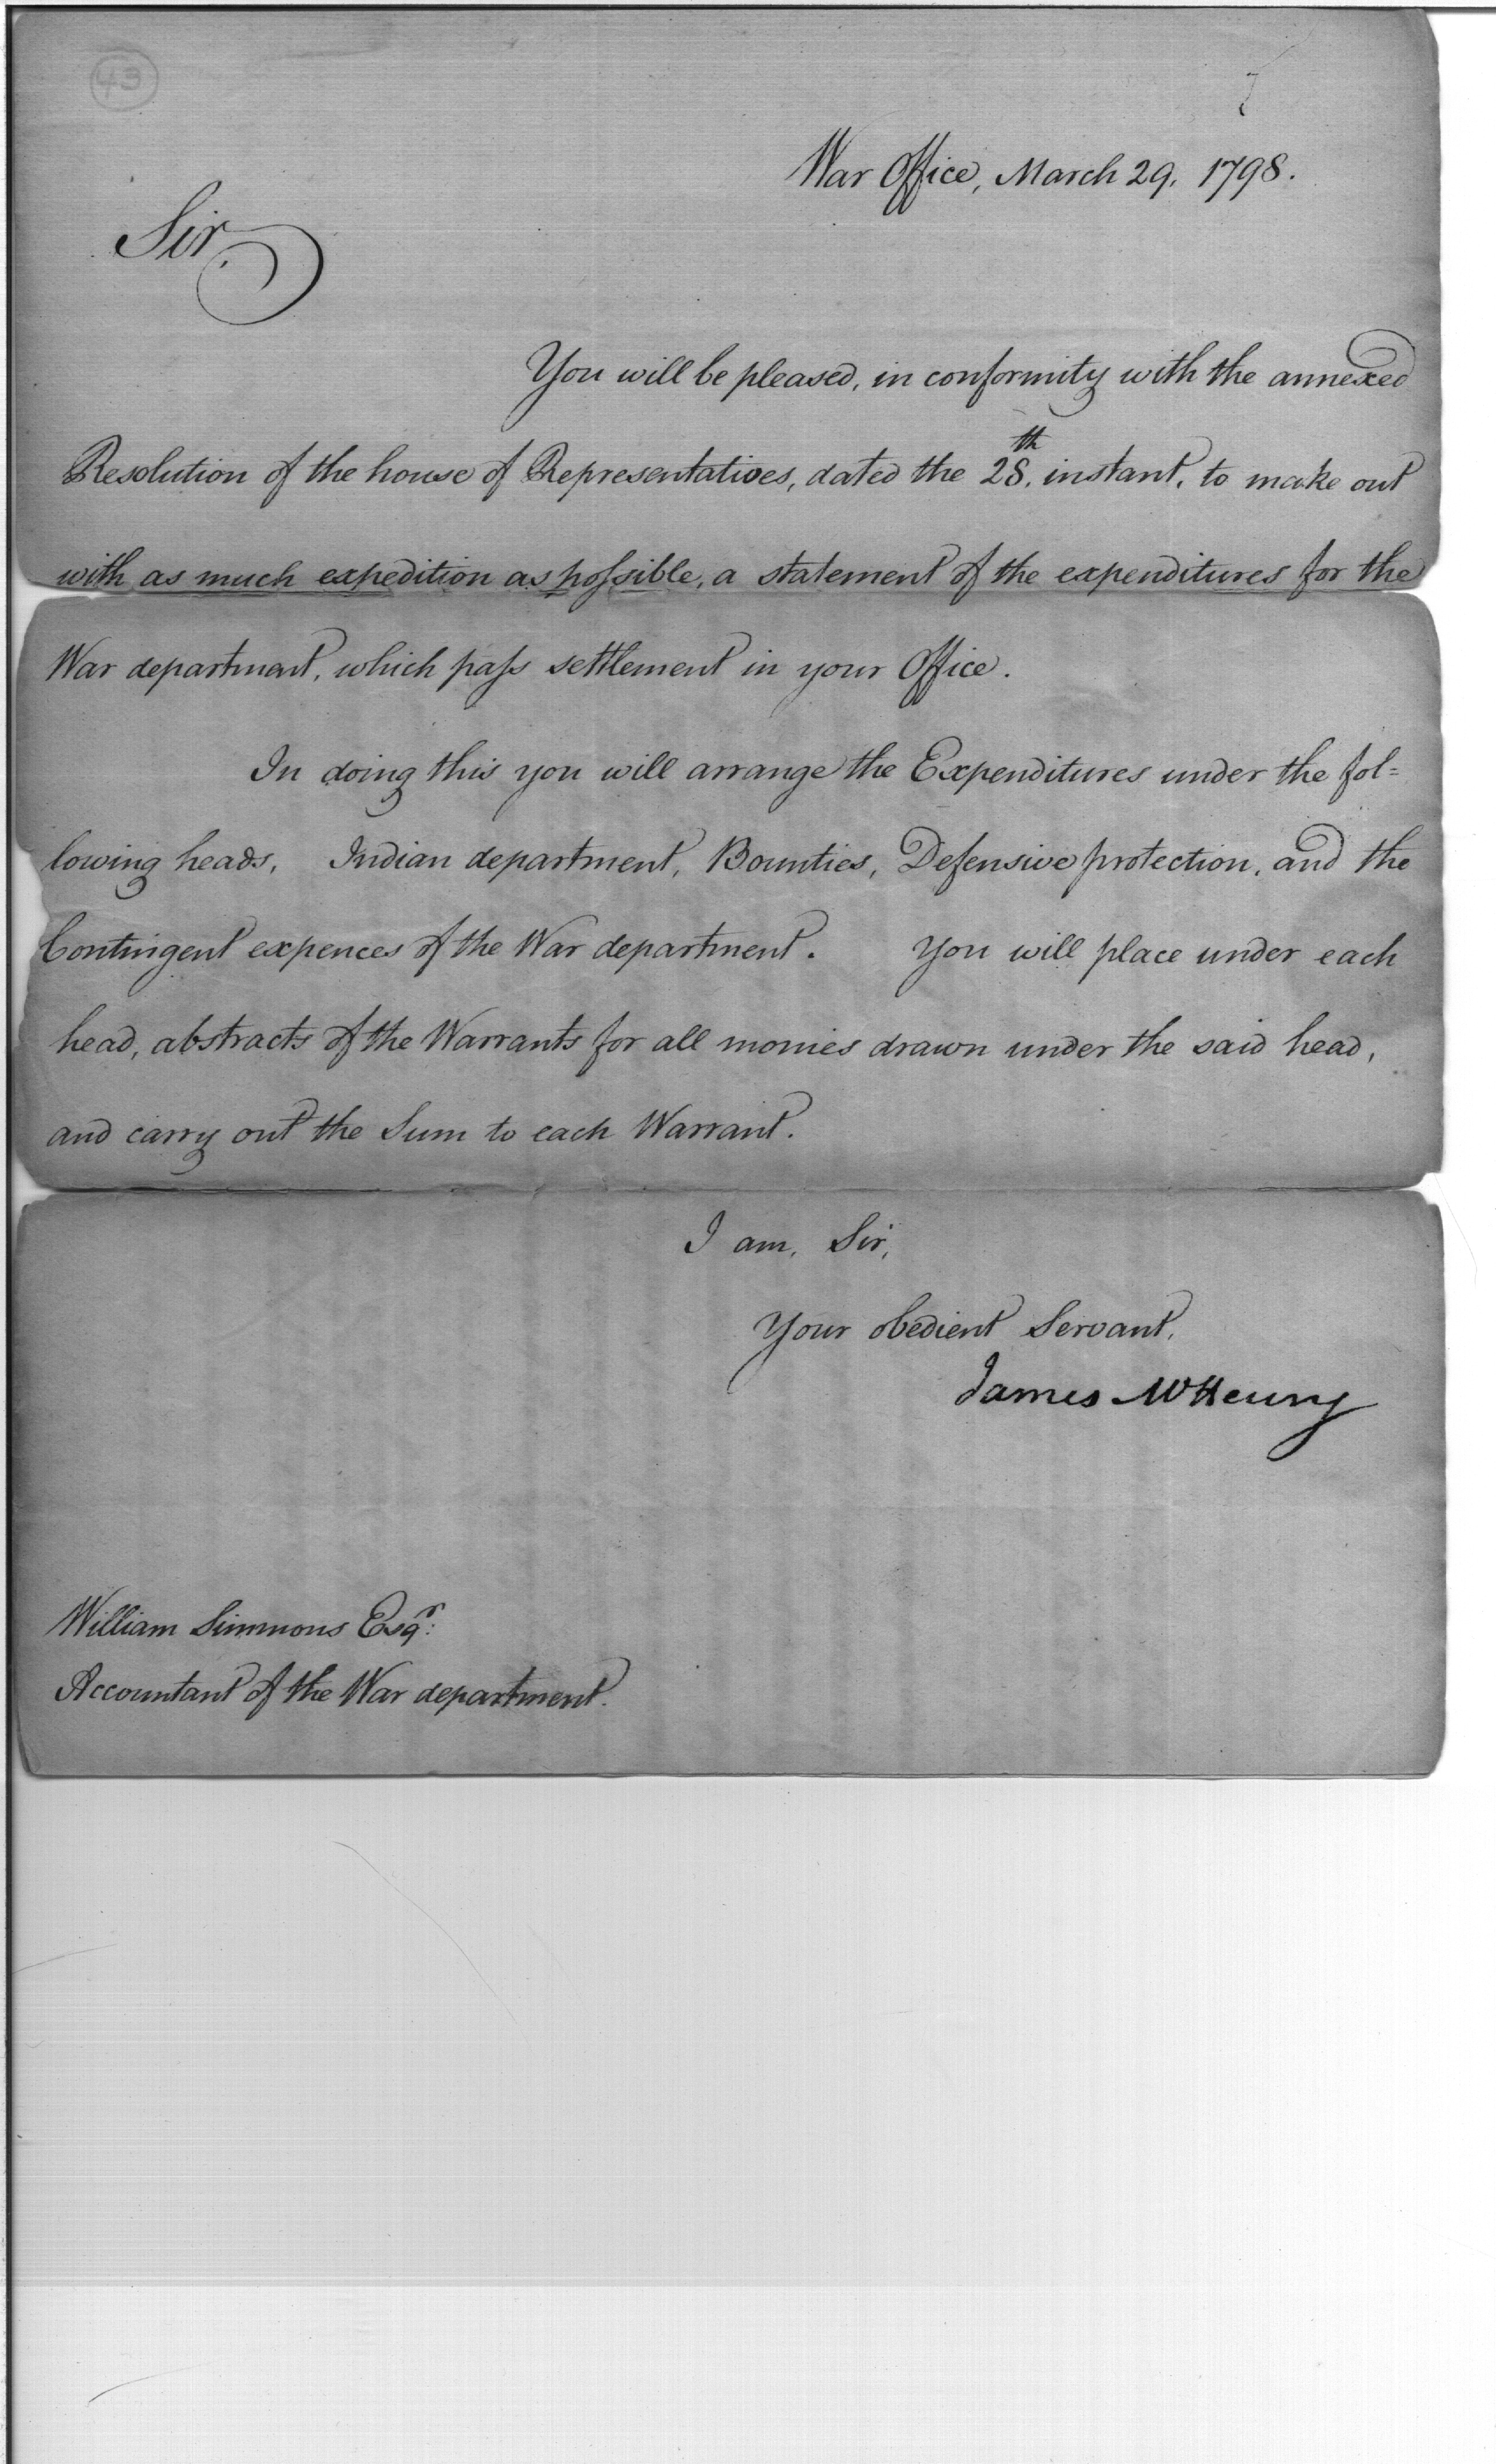 43
War Office, March 29, 1798.
Sir
You will be pleased, in conformity with the annexed
Resolution of the house of Representatives, dated the 28th. instant, to make out
with as much expedition as poſsible, a statement of the expenditures for the
War department, which paſs settlement in your Office.
In doing this you will arrange the Expenditures under the fol=
lowing heads, Indian department, Bounties, Defensive protection, and the
Contingent expences of the War department. You will place under each
head, abstracts of the Warrants for all monies drawn under the said head,
and carry out the Sum to each Warrant.
I am, Sir,
Your obedient Servant,
James McHenry
William Simmons Esqr:
Accountant of the War department.